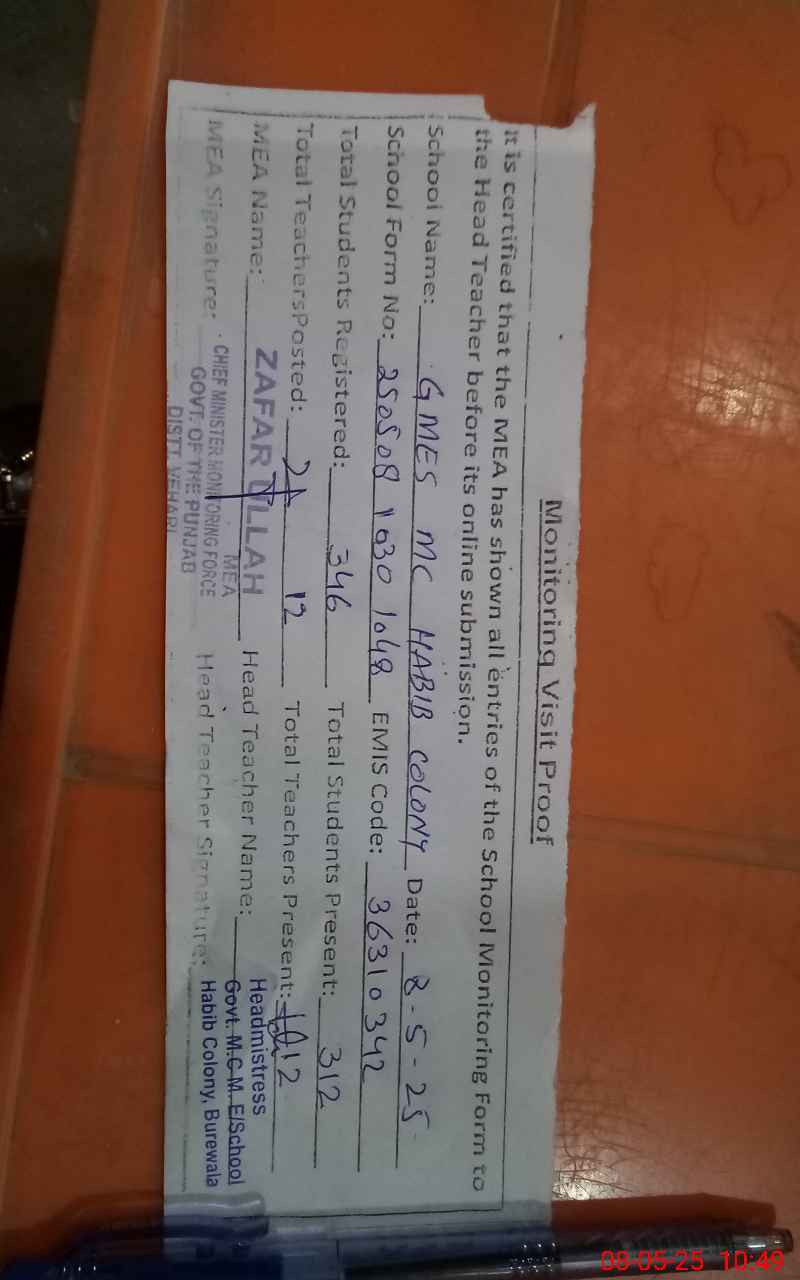 Monitoring Visit Proof
It is certified that the MEA has shown all entries of the School Monitoring Form to
the Head Teacher before its online submission.
School Name: GMES MC HABIB COLONY Date: 8-5-25
School Form No: 250508 1030 1048 EMIS Code: 36310342
Total Students Registered: 346 Total Students Present: 312
Total TeachersPosted: 12 Total Teachers Present: 12
MEA Name: ZAFAR ULLAH Head Teacher Name: Headmistress
MEA
MEA Signature: CHIEF MINISTER MONITORING FORCE Head Teacher Signature: Govt. M.C.M. E/School
GOVT. OF THE PUNJAB Habib Colony, Burewala
DISTT. VEHARI
08-05-25 10:49